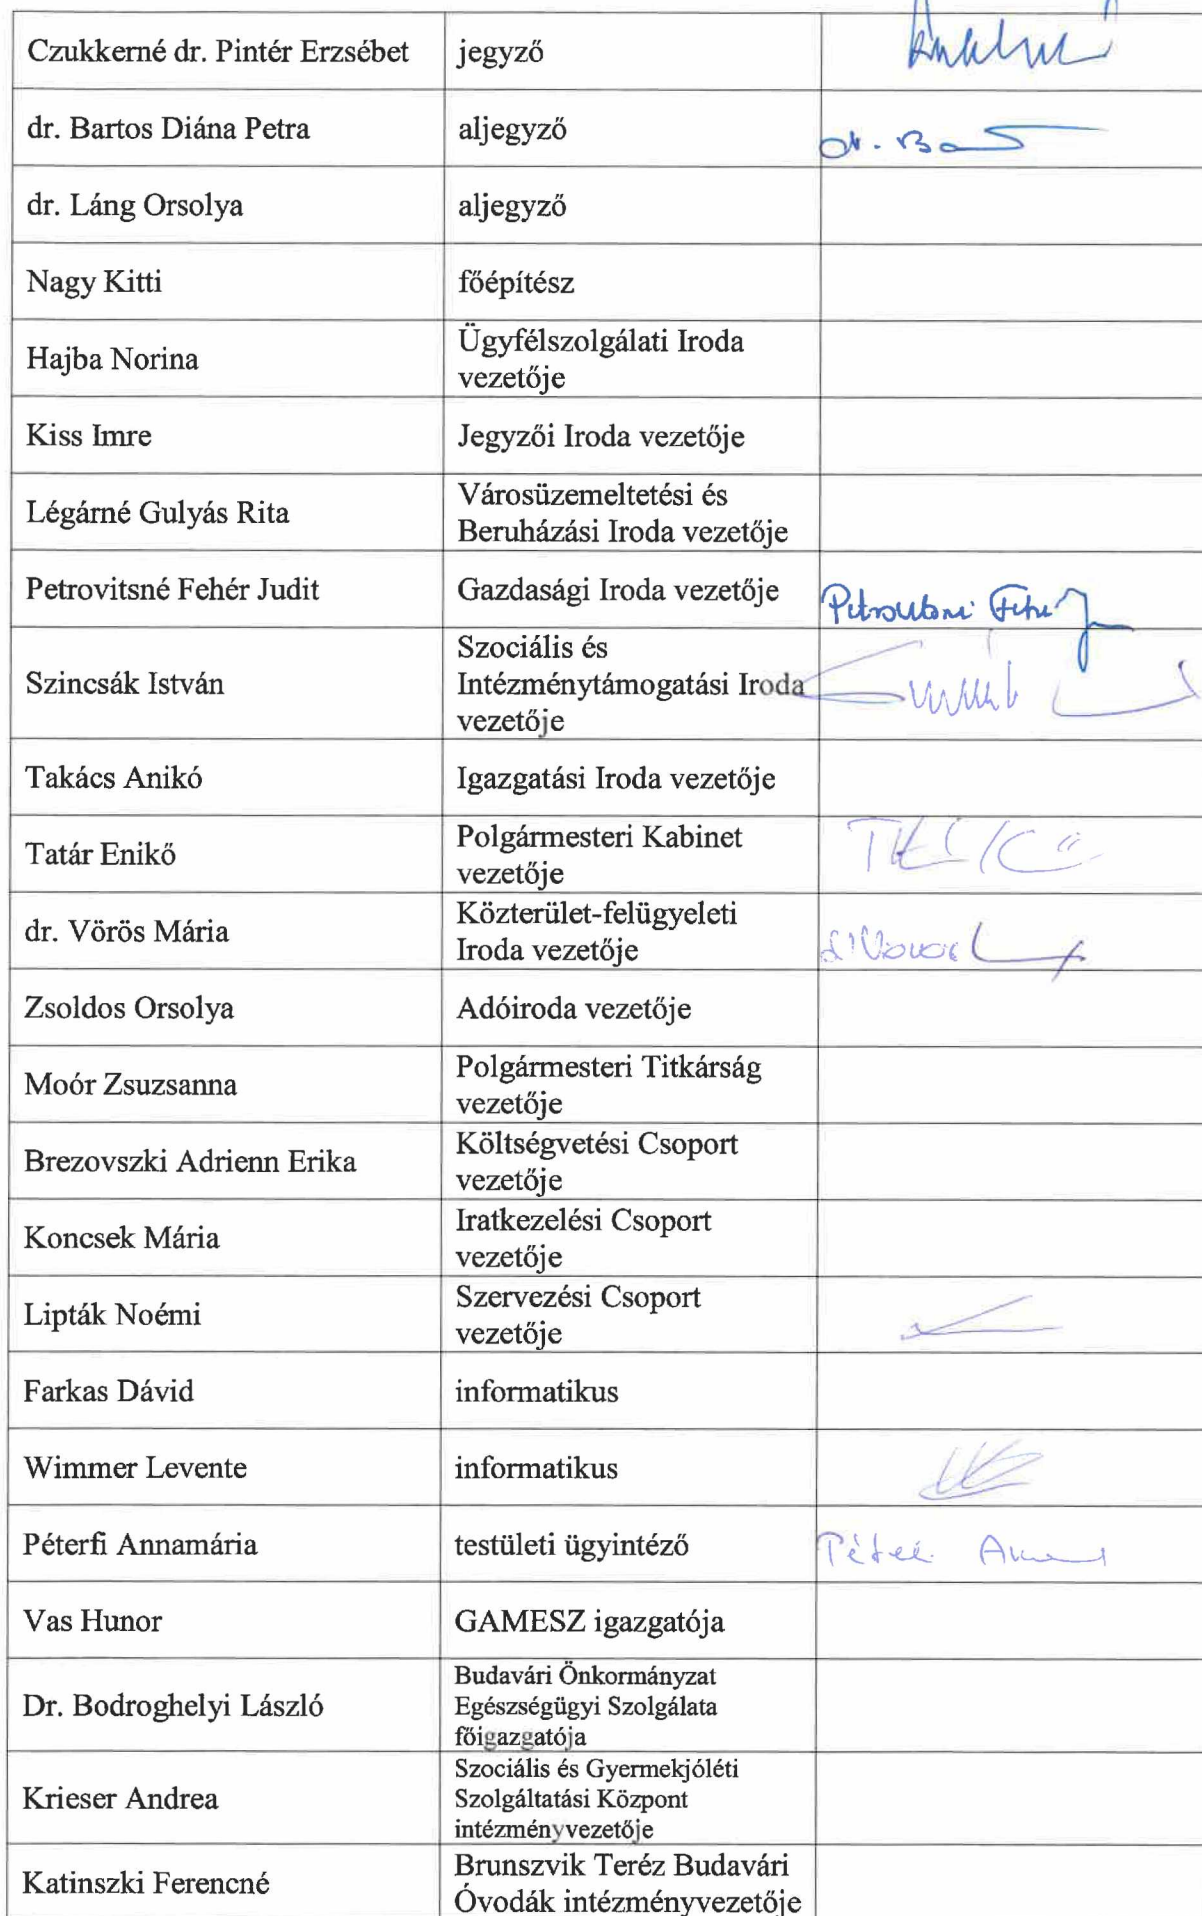 Czukkerné dr. Pintér Erzsébet
jegyző
dr. Bartos Diána Petra
aljegyző
dr. Ba
dr. Láng Orsolya
aljegyző
Nagy Kitti
főépítész
Hajba Norina
Ügyfélszolgálati Iroda
vezetője
Kiss Imre
Jegyzői Iroda vezetője
Légárné Gulyás Rita
Városüzemeltetési és
Beruházási Iroda vezetője
Petrovitsné Fehér Judit
Gazdasági Iroda vezetője
Szincsák István
Szociális és
Intézménytámogatási Iroda
vezetője
Takács Anikó
Igazgatási Iroda vezetője
Tatár Enikő
Polgármesteri Kabinet
vezetője
dr. Vörös Mária
Közterület-felügyeleti
Iroda vezetője
Zsoldos Orsolya
Adóiroda vezetője
Moór Zsuzsanna
Polgármesteri Titkárság
vezetője
Brezovszki Adrienn Erika
Költségvetési Csoport
vezetője
Koncsek Mária
Iratkezelési Csoport
vezetője
Lipták Noémi
Szervezési Csoport
vezetője
Farkas Dávid
informatikus
Wimmer Levente
informatikus
Péterfi Annamária
testületi ügyintéző
Vas Hunor
GAMESZ igazgatója
Dr. Bodroghelyi László
Budavári Önkormányzat
Egészségügyi Szolgálata
főigazgatója
Krieser Andrea
Szociális és Gyermekjóléti
Szolgáltatási Központ
intézményvezetője
Katinszki Ferencné
Brunszvik Teréz Budavári
Óvodák intézményvezetője